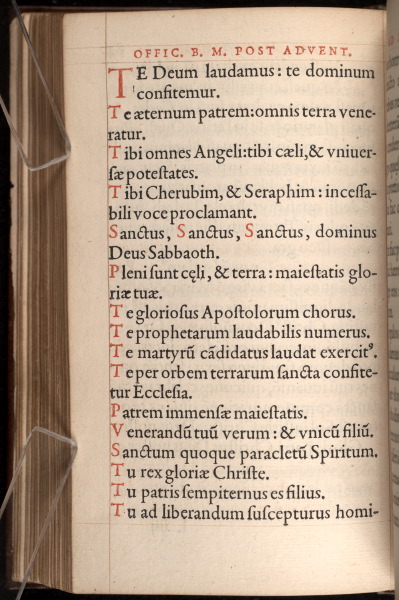 OFFIC. B. M. POST ADVENT.
TE Deum laudamus : te dominum
confitemur.
Te æternum patrem:omnis terra vene-
ratur.
Tibi omnes Angeli:tibi cæli,& vniuer-
ſæ poteſtates.
Tibi Cherubim, & Seraphim : inceſſa-
bili voce proclamant.
Sanctus, Sanctus, Sanctus, dominus
Deus Sabbaoth.
Pleni ſunt cęli, & terra : maieſtatis glo-
riæ tuæ.
Te glorioſus Apoſtolorum chorus.
Te prophetarum laudabilis numerus.
Te martyrū cādidatus laudat exercitꝰ.
Te per orbem terrarum ſancta confite-
tur Eccleſia.
Patrem immenſæ maieſtatis.
Venerandū tuū verum : & vnicū filiū.
Sanctum quoque paracletū Spiritum.
Tu rex gloriæ Chriſte.
Tu patris ſempiternus es filius.
Tu ad liberandum ſuſcepturus homi-